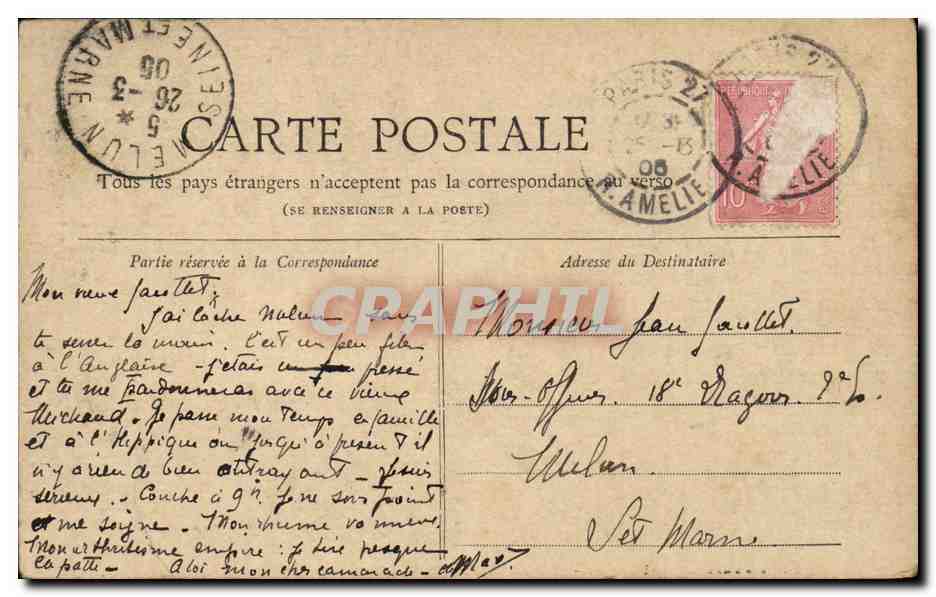 MELUN
SEINE ET MARNE
5
26 -3
05
CARTE POSTALE
Tous les pays étrangers n'acceptent pas la correspondance au verso
(SE RENSEIGNER A LA POSTE)
PARIS 27
25 -3
05
R. AMELIE
PARIS 27
R. AMELIE
REPUBLIQUE
10
Partie réservée à la Correspondance
Mon vieux Jacottet,
J'ai lâché Melun sans
te serrer la main. C'est un peu filer
à l'Anglaise - j'étais un peu pressé
et tu me pardonneras avec ce vieux
Michaud. Je passe mon temps en famille
et à l'Hippique où jusqu'à présent il
n'y a rien de bien attrayant - Je suis
sérieux. Couche à 9h. Je ne sors point
et me soigne. Mon rhume va mieux.
Mon arthritisme empire : je tire presque
la patte - A toi mon cher camarade -
CPAPHIL
Adresse du Destinataire
Monsieur Jean Jacottet.
Sous-Officier 18e Dragons
Melun.
Set Marne